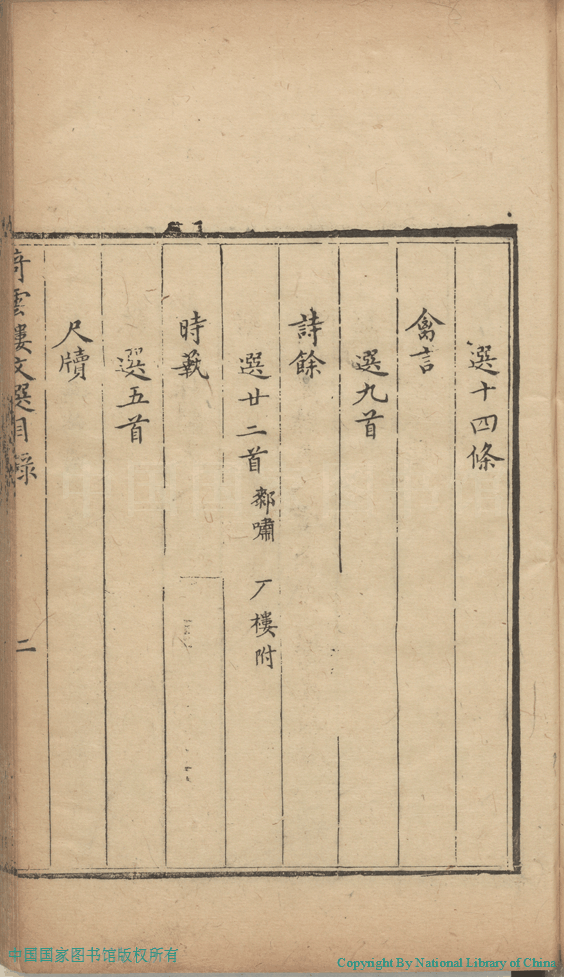 選十四條
禽言
選九首
詩餘
選廿二首 鄰嘯 厂樓附
時蓺
選五首
尺牘
雲樓文選目錄 二
中国国家图书馆
中国国家图书馆版权所有
Copyright By National Library of China